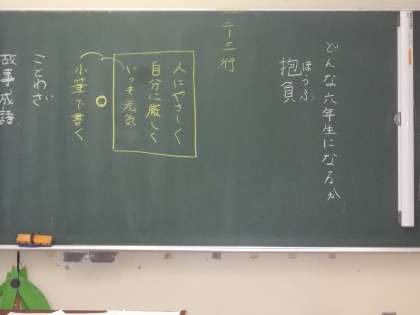 どんな六年生になるか
ほうふ
抱負
二〜三行
人にやさしく
自分に厳しく
いつも元気
小筆で書く
ことわざ
故事成語